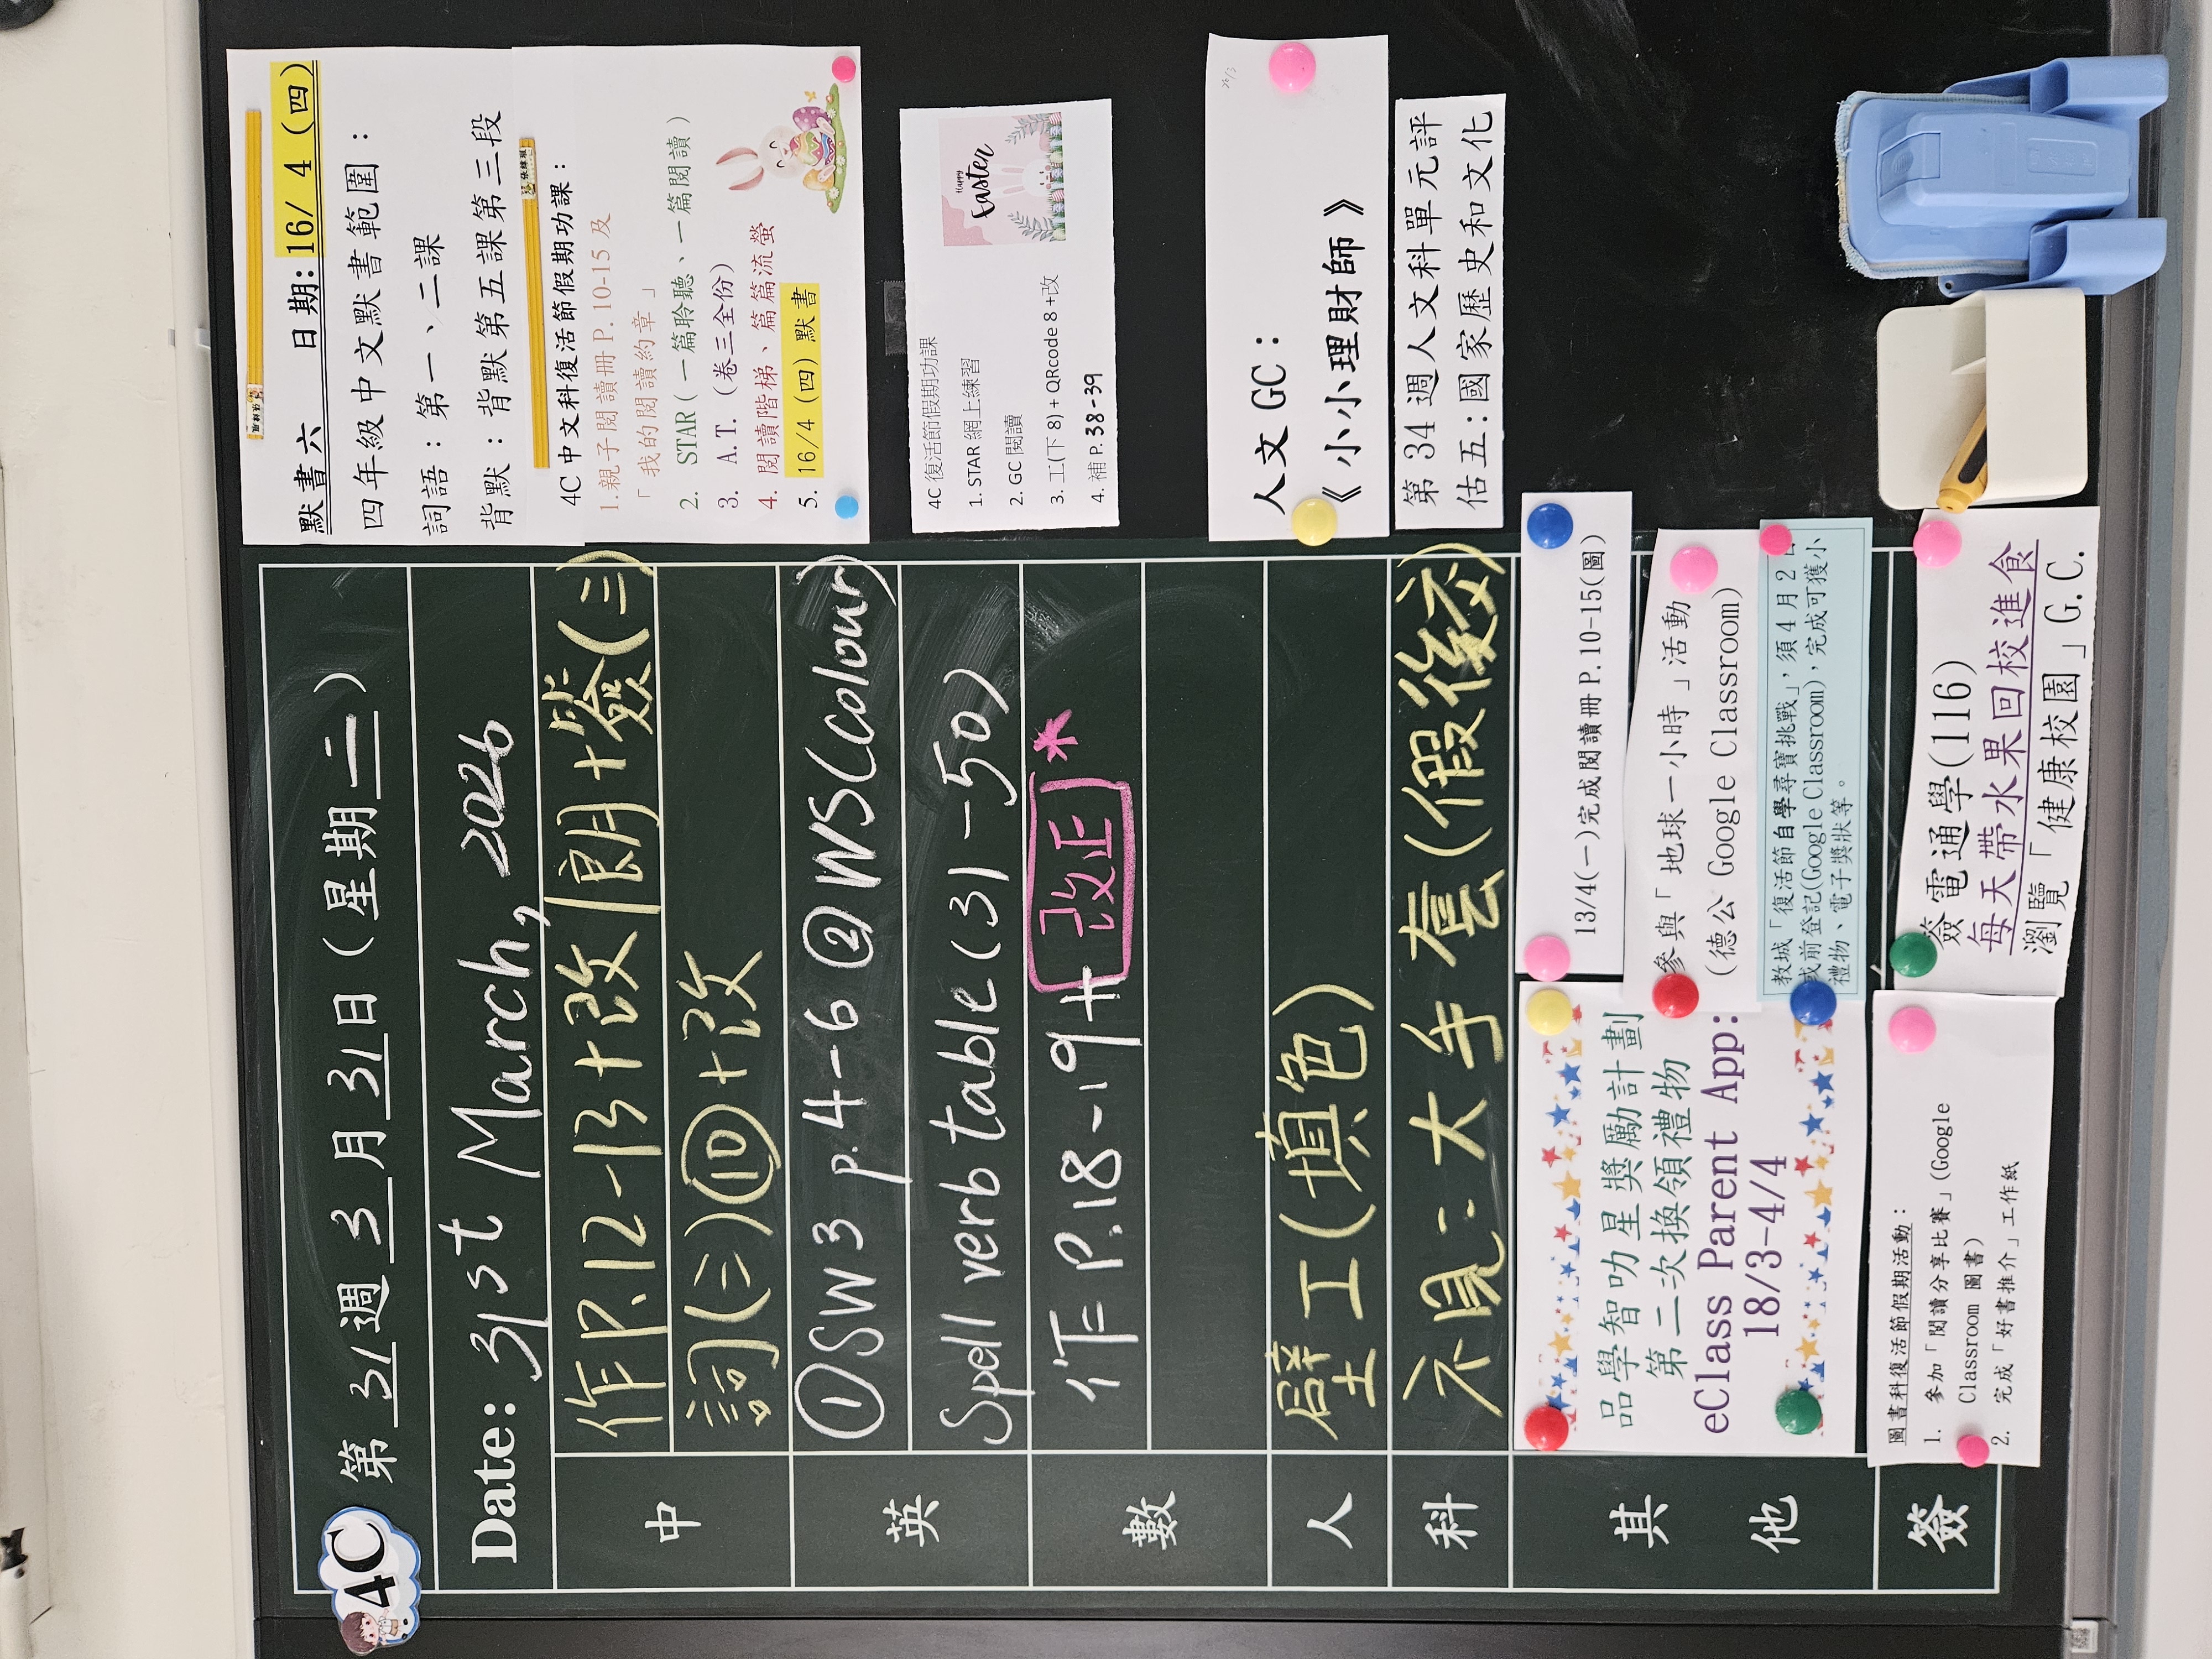 4C
第 31 週 3 月 31 日 (星期 二)
Date: 31st March, 2026
中
作P.12-13+改 朗+簽(三)
詞(二)⑩+改
英
①SW3 p.4-6 ②WS(colour)
Spell verb table (31-50)
數
作 P.18-19+改正*
人
壁工(填色)
科
不見:大手套(假後交)
其他
品學智叻星獎勵計劃
第二次換領禮物
eClass Parent App:
18/3-4/4
13/4(一)完成閱讀冊 P.10-15(圖)
參與「地球一小時」活動
(德公 Google Classroom)
教城「復活節自學尋寶挑戰」,須 4 月 2 日
或前登記(Google Classroom),完成可獲小
禮物、電子獎狀等。
簽
圖書科復活節假期活動:
1. 參加「閱讀分享比賽」(Google
Classroom 圖書)
2. 完成「好書推介」工作紙
簽電通學(116)
每天帶水果回校進食
瀏覽「健康校園」G.C.
默書六 日期:16/ 4 (四)
四年級中文默書範圍:
詞語:第一、二課
背默:背默第五課第三段
4C 中文科復活節假期功課:
1.親子閱讀冊 P.10-15 及
「我的閱讀約章」
2. STAR(一篇聆聽、一篇閱讀)
3. A.T. (卷三全份)
4. 閱讀階梯、篇篇流螢
5. 16/4 (四) 默書
4C 復活節假期功課
1. STAR 網上練習
2. GC 閱讀
3. 工(下 8) + QRcode 8 +改
4. 補 P.38-39
Happy
Easter
人文 GC:
《小小理財師》
第 34 週人文科單元評
估五:國家歷史和文化